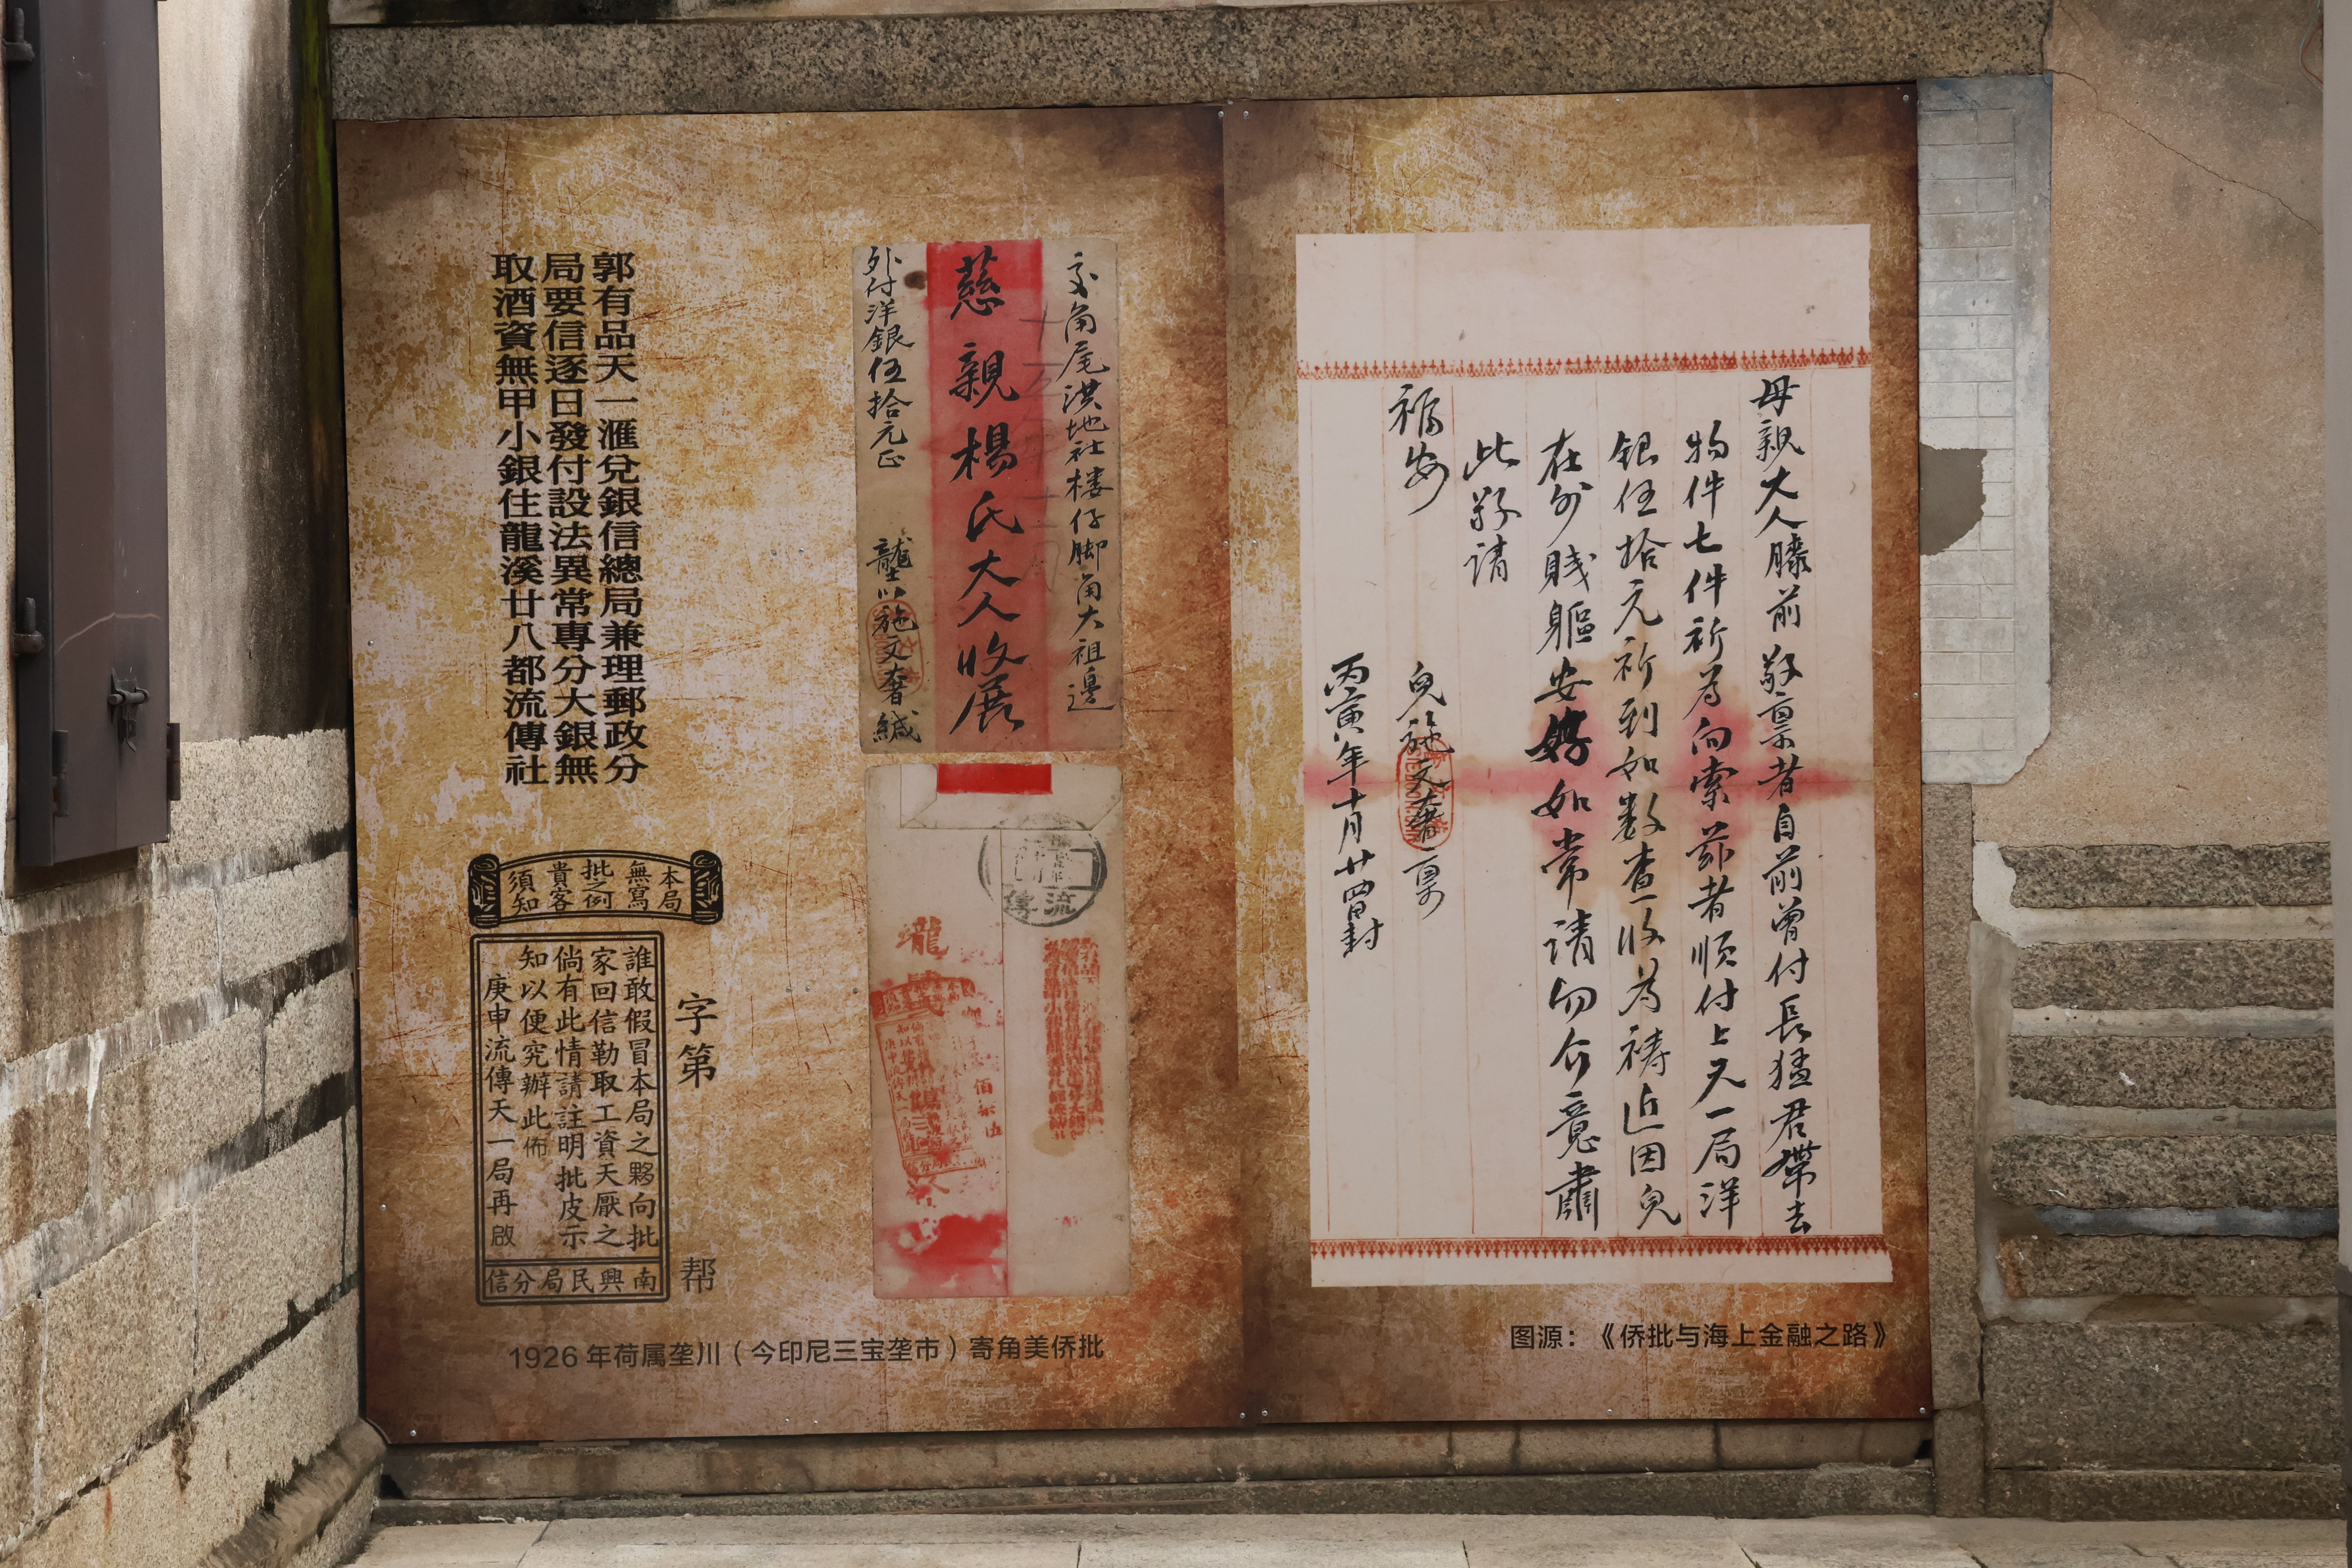 郭有品天一滙兌銀信總局兼理郵政分
局要信逐日發付設法異常專分大銀無
取酒資無甲小銀住龍溪廿八都流傳社
本局
無寫
批之例
貴客
須知
字第
帮
誰敢假冒本局之夥向批
家回信勒取工資天厭之
倘有此情請註明批皮示
知以便究辦此佈
庚申流傳天一局再啟
南興民局分信
交角尾洪地社楼仔脚角大祖邊
慈親楊氏大人收展
外付洋銀伍拾元正
壟川施文奢緘
流傳
1926年荷属垄川（今印尼三宝垄市）寄角美侨批
母親大人膝前敬稟者自前曾付長猛君帶去
物件七件祈为向索茲者順付上天一局洋
銀伍拾元祈到如数查收为禱近因兒
在外賤軀安好如常請勿介意肅
此敬請
福安
兒施文奢稟
丙寅年十月廿四日封
图源：《侨批与海上金融之路》